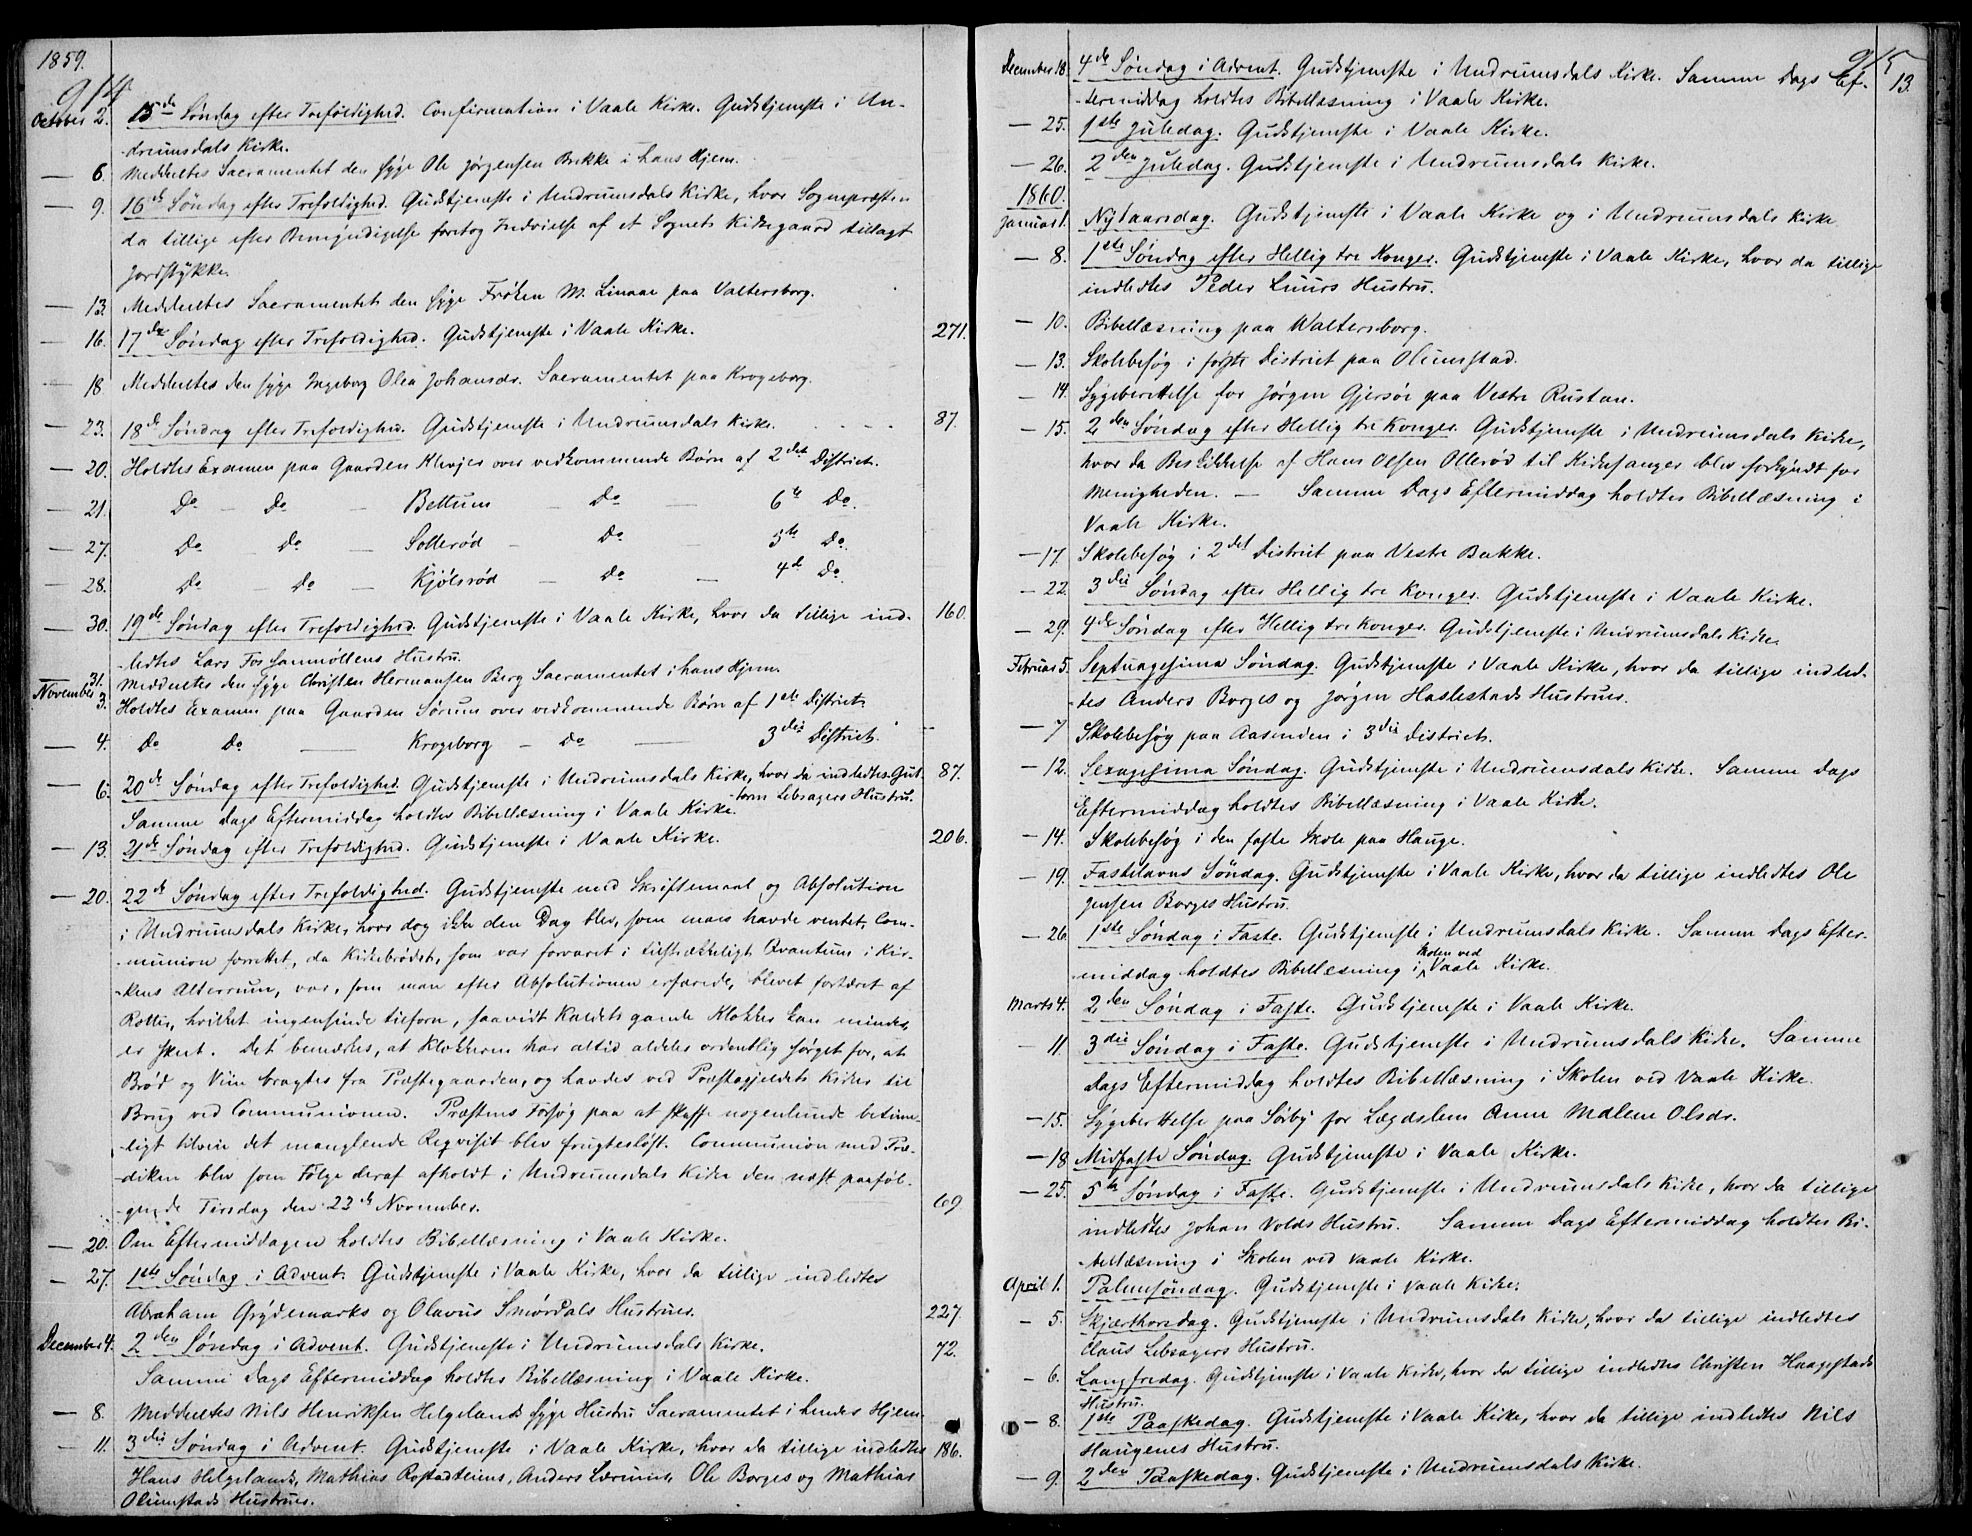 1859.
914
October 2. 15de Søndag efter Trefoldighed. Confirmation i Vaale Kirke. Gudstjeneste i Un-
-drumsdals Kirke.
— 6. Meddeeltes Sacramentet den syge Ole Jørgensen Bekke i hans Hjem.
— 9. 16de Søndag efter Trefoldighed. Gudstjeneste i Undrumsdals Kirke, hvor Sognepræsten
da tillige efter Bemyndigelse foretog Indvielse af et Sognets Kirkegaard tillagt
Jordstykke.
— 13. Meddeeltes Sacramentet den syge Frøken M. Linaae paa Valtersborg.
— 16. 17de Søndag efter Trefoldighed. Gudstjeneste i Vaale Kirke. 271.
— 18 Meddeeltes den syge Ingeborg Olea Johansdr. Sacramentet paa Krogeborg.
— 23. 18de Søndag efter Trefoldighed. Gudstjeneste i Undrumsdals Kirke. 87.
— 20. Holdtes Examen paa Gaarden Klevjer over vedkommende Børn af 2det District.
— 21. Do — Do — Bettum — Do — 6te Do.
— 27. Do Do — Sollerød — Do 5te Do.
— 28. Do — Do — Kjølsrød — Do — 4de Do.
— 30. 19de Søndag efter Trefoldighed. Gudstjeneste i Vaale Kirke, hvor da tillige ind- 160.
-ledtes Lars Fossanmøllens Hustru.
31. Meddeeltes den syge Christen Hermansen Berg Sacramentet i hans Hjem.
November 3. Holdtes Examen paa Gaarden Sørum over vedkommende Børn af 1ste District.
— 4. Do Do — Krogeborg — Do — 3die District.
— 6. 20de Søndag efter Trefoldighed. Gudstjeneste i Undrumsdals Kirke, hvor da indledtes Gut- 87.
-torm Lebsagers Hustru.
Samme Dags Eftermiddag holdtes Bibellæsning i Vaale Kirke.
— 13. 21de Søndag efter Trefoldighed. Gudstjeneste i Vaale Kirke. 206.
— 20. 22de Søndag efter Trefoldighed. Gudstjeneste med Skriftemaal og Absolution
i Undrumsdals Kirke, hvor dog ikke den Dag blev, som man havde ventet, Com-
-munion forrettet, da Kirkebrødet, som var forvaret i tilstrækkeligt Qvantum i Kir-
-kens Alterrum, var, som man efter Absolutionen erfarede, blevet fortæret af
Rotter, hvilket ingensinde tilforn, saavidt Kaldets gamle Klokker kan mindes,
er skeet. Det bemærkes, at Klokkeren har altid aldeles ordentlig sørget for, at
Brød og Viin bragtes fra Præstegaarden, og havdes ved Præstegjeldets Kirker til
Brug ved Communionen. Præstens Forsøg paa at skaffe nogenlunde betime-
-ligt tilveie det manglende Reqvisit blev frugtesløst. Communion med Præ-
-diken blev som Følge deraf afholdt i Undrumsdals Kirke den næst paaføl-
-gende Tirsdag den 22de November. 69
— 20. Om Eftermiddagen holdtes Bibellæsning i Vaale Kirke.
— 27. 1ste Søndag i Advent. Gudstjeneste i Vaale Kirke, hvor da tillige indledtes
Abraham Grydemarks og Olavus Smørdals Hustruer. 227.
December 4. 2den Søndag i Advent. Gudstjeneste i Undrumsdals Kirke. 72.
Samme Dags Eftermiddag holdtes Bibellæsning i Vaale Kirke.
— 8. Meddeeltes Nils Henriksen Helgelands syge Hustru Sacramentet i hendes Hjem.
— 11. 3die Søndag i Advent. Gudstjeneste i Vaale Kirke, hvor da tillige indledtes 186.
Hans Helgelands, Mathias Rostadteiens, Anders Lærums, Ole Borges og Mathias
Olumstads Hustruer.
915
13.
December 18. 4de Søndag i Advent. Gudstjeneste i Undrumsdals Kirke. Samme Dags Ef-
-termiddag holdtes Bibellæsning i Vaale Kirke.
— 25. 1ste Juledag. Gudstjeneste i Vaale Kirke.
— 26. 2den Juledag. Gudstjeneste i Undrumsdals Kirke.
1860.
Januar 1. Nytaarsdag. Gudstjeneste i Vaale Kirke og i Undrumsdals Kirke.
— 8. 1ste Søndag efter Hellig tre Konger. Gudstjeneste i Vaale Kirke, hvor da tillige
indledtes Peder Luurs Hustru.
— 10. Bibellæsning paa Waltersborg.
— 13. Skolebesøg i første District paa Olumstad.
— 14. Sygeberettelse for Jørgen Gjersøe paa Vestre Rustan.
— 15. 2den Søndag efter Hellig tre Konger. Gudstjeneste i Undrumsdals Kirke,
hvor da Beskikkelse af Hans Olsen Ollerød til Kirkesanger blev forkyndt for
Menigheden. — Samme Dags Eftermiddag holdtes Bibellæsning i
Vaale Kirke.
— 17. Skolebesøg i 2det District paa Vestre Bakke.
— 22. 3die Søndag efter Hellig tre Konger. Gudstjeneste i Vaale Kirke.
— 29. 4de Søndag efter Hellig tre Konger. Gudstjeneste i Undrumsdals Kirke.
Februar 5. Septuagesima Søndag. Gudstjeneste i Vaale Kirke, hvor da tillige indled-
-tes Anders Borges og Jørgen Haslestads Hustruer.
— 7 Skolebesøg paa Aasenden i 3die District.
— 12. Sexagesima Søndag. Gudstjeneste i Undrumsdals Kirke. Samme Dags
Eftermiddag holdtes Bibellæsning i Vaale Kirke.
— 14. Skolebesøg i den faste Skole paa Hauge.
— 19. Fastelavns Søndag. Gudstjeneste i Vaale Kirke, hvor da tillige indledtes Ole
Jensen Borges Hustru.
— 26. 1ste Søndag i Faste. Gudstjeneste i Undrumsdals Kirke. Samme Dags Efter-
-middag holdtes Bibellæsning i Skolen ved Vaale Kirke.
Marts 4. 2den Søndag i Faste. Gudstjeneste i Vaale Kirke.
— 11. 3die Søndag i Faste. Gudstjeneste i Undrumsdals Kirke. Samme
Dags Eftermiddag holdtes Bibellæsning i Skolen ved Vaale Kirke.
— 15. Sygeberettelse paa Sørby for Lægdslem Anne Malene Olsdr.
— 18 Midfaste Søndag. Gudstjeneste i Vaale Kirke.
— 25. 5te Søndag i Faste. Gudstjeneste i Undrumsdals Kirke, hvor da tillige
indledtes Johan Volds Hustru. Samme Dags Eftermiddag holdtes Bi-
-bellæsning i Skolen ved Vaale Kirke.
April 1. Palmesøndag. Gudstjeneste i Vaale Kirke.
— 5. Skjærthorsdag. Gudstjeneste i Undrumsdals Kirke, hvor da tillige indledtes
Claus Lebsagers Hustru.
— 6. Langfredag. Gudstjeneste i Vaale Kirke, hvor da tillige indledtes Christen Haagestads
Hustru.
— 8. 1ste Paaskedag. Gudstjeneste i Vaale Kirke, hvor da tillige indledtes Nils
Haugenes Hustru.
— 9. 2den Paaskedag. Gudstjeneste i Undrumsdals Kirke.